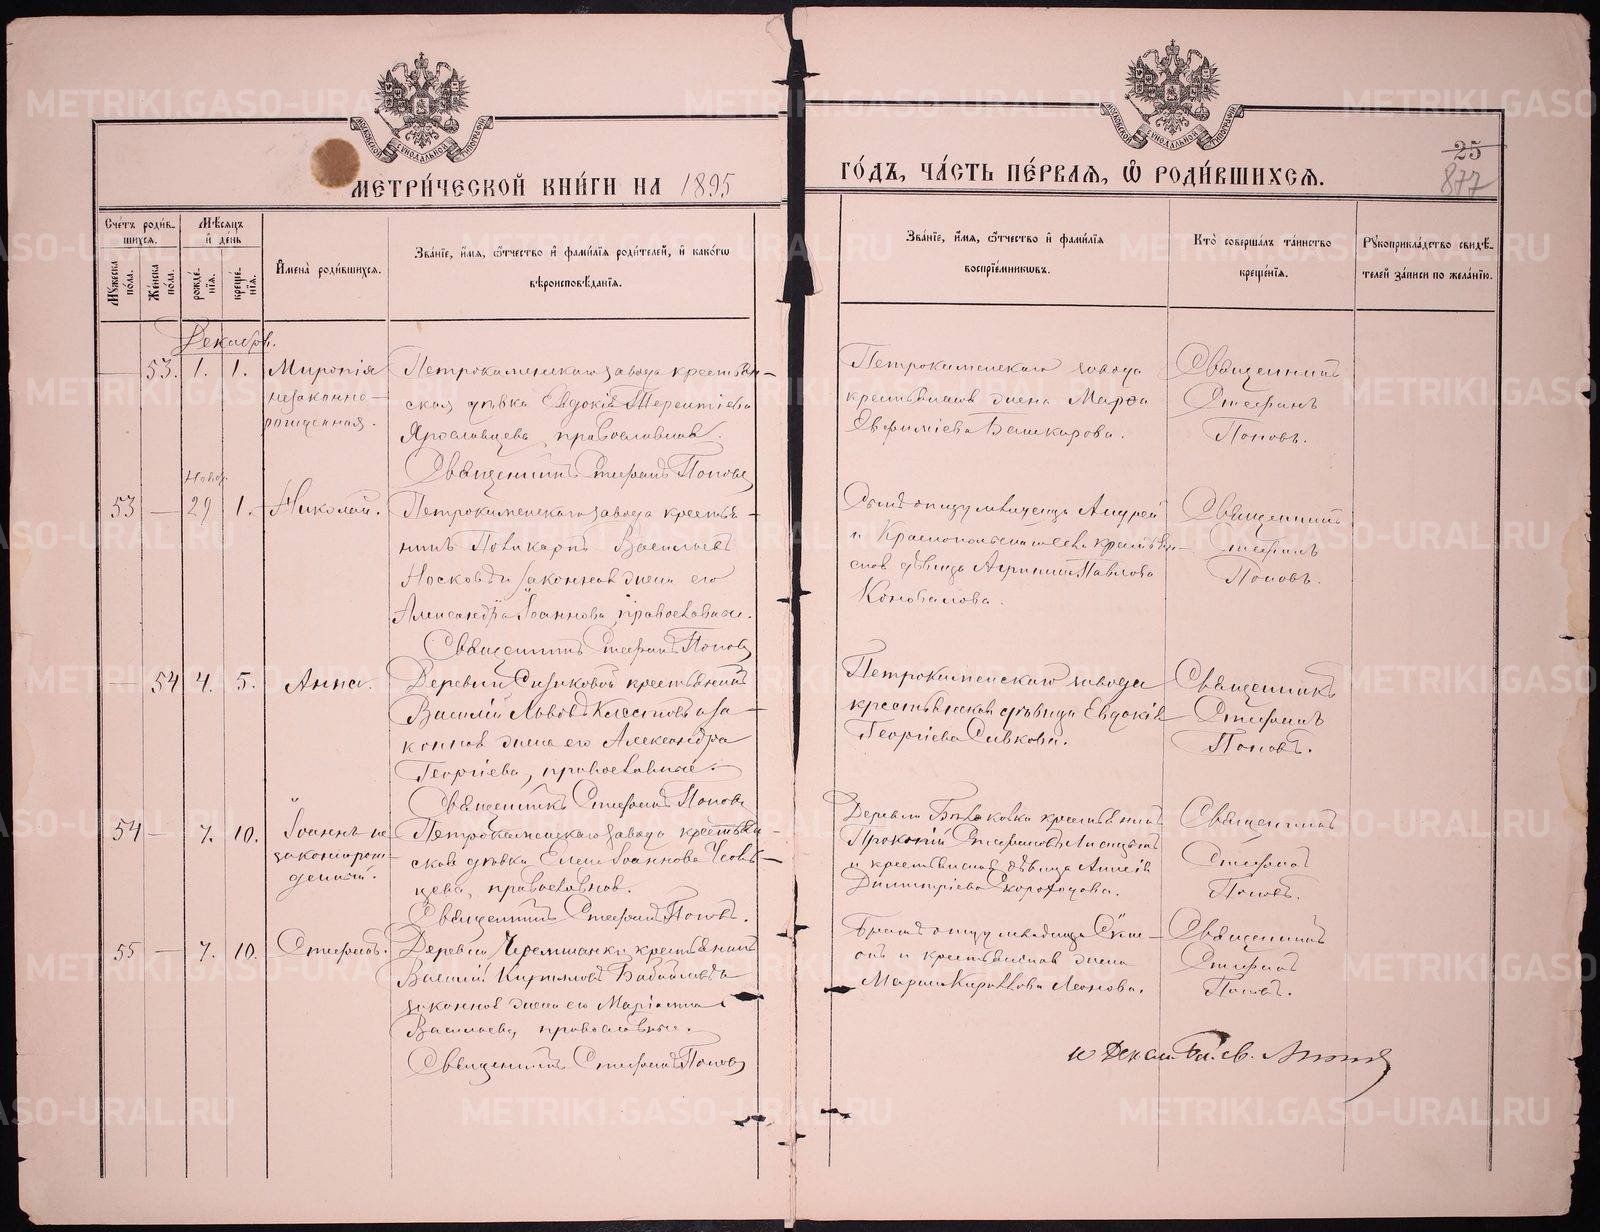 МЕТРИ́ЧЕСКОЙ КНИ́ГИ НА 1895
ГО́ДЪ, ЧА́СТЬ ПЕ́РВАѦ, Ѽ РОДИ́ВШИХСѦ.
25
877
Сче́тъ роди́в-
шихся.
Мѣ́сяцъ
и҆ де́нь
Мꙋ́жеска по́ла.
Же́нска по́ла.
рожде́-
нїѧ.
креще́-
нїѧ.
И҆мена̀ роди́вшихся.
Зва́нїе, и҆́мя, ѻ҆́тчество и҆ фами́лїя роди́телей, и҆ како́гѡ
вѣроисповѣ́данїя.
Зва́нїе, и҆́мя, ѻ҆́тчество и҆ фами́лїя
воспрїе́мниковъ.
Кто̀ соверша́лъ та́инство
креще́нїя.
Рꙋкоприкла́дство свидѣ́-
телей за́писи по жела́нїю.
Декабрь.
— 53. 1. 1. Миропія
незаконно-
рожденная.
Петрокаменскаго завода крестьян-
ская дѣвка Евдокія Терентіева
Ярославцева, православная.
Священникъ Стефанъ Поповъ
Петрокаменскаго завода
крестьянская жена Марѳа
Евфиміева Башкирова.
Священникъ
Стефанъ
Поповъ.
Нояб.
53 — 29 1. Николай.
Петрокаменскаго завода крестья-
нинъ Поликарпъ Васильевъ
Носковъ и законная жена его
Александра Іоаннова, православные.
Священникъ Стефанъ Поповъ
Андрей
и Краснопольскаго села крестьян-
ская дѣвица Агрипина Павлова
Коновалова.
Священникъ
Стефанъ
Поповъ.
— 54 4. 5. Анна.
Деревни Сизиковой крестьянинъ
Василій Львовъ и за-
конная жена его Александра
Георгіева, православные.
Священникъ Стефанъ Поповъ
Петрокаменскаго завода
крестьянская дѣвица Евдокія
Георгіева Сивкова.
Священникъ
Стефанъ
Поповъ.
54 — 7. 10. Іоаннъ не
законорож-
денный.
Петрокаменскаго завода крестьян-
ская дѣвка Елена Іоаннова
православная.
Священникъ Стефанъ Поповъ.
Деревни крестьянинъ
Прокопій Стефановъ
и крестьянская дѣвица Аннсія
Димитріева Скороходова.
Священникъ
Стефанъ
Поповъ.
55 — 7. 10. Стефанъ.
Деревни Черемшанки крестьянинъ
Василій Кириловъ Бабайловъ и
законная жена его Маріамна
Васильева, православные.
Священникъ Стефанъ Поповъ
Братъ отцу младенца
и крестьянская жена
Марія Кириллова Леонова.
Священникъ
Стефанъ
Поповъ.
METRIKI.GASO-URAL.RU